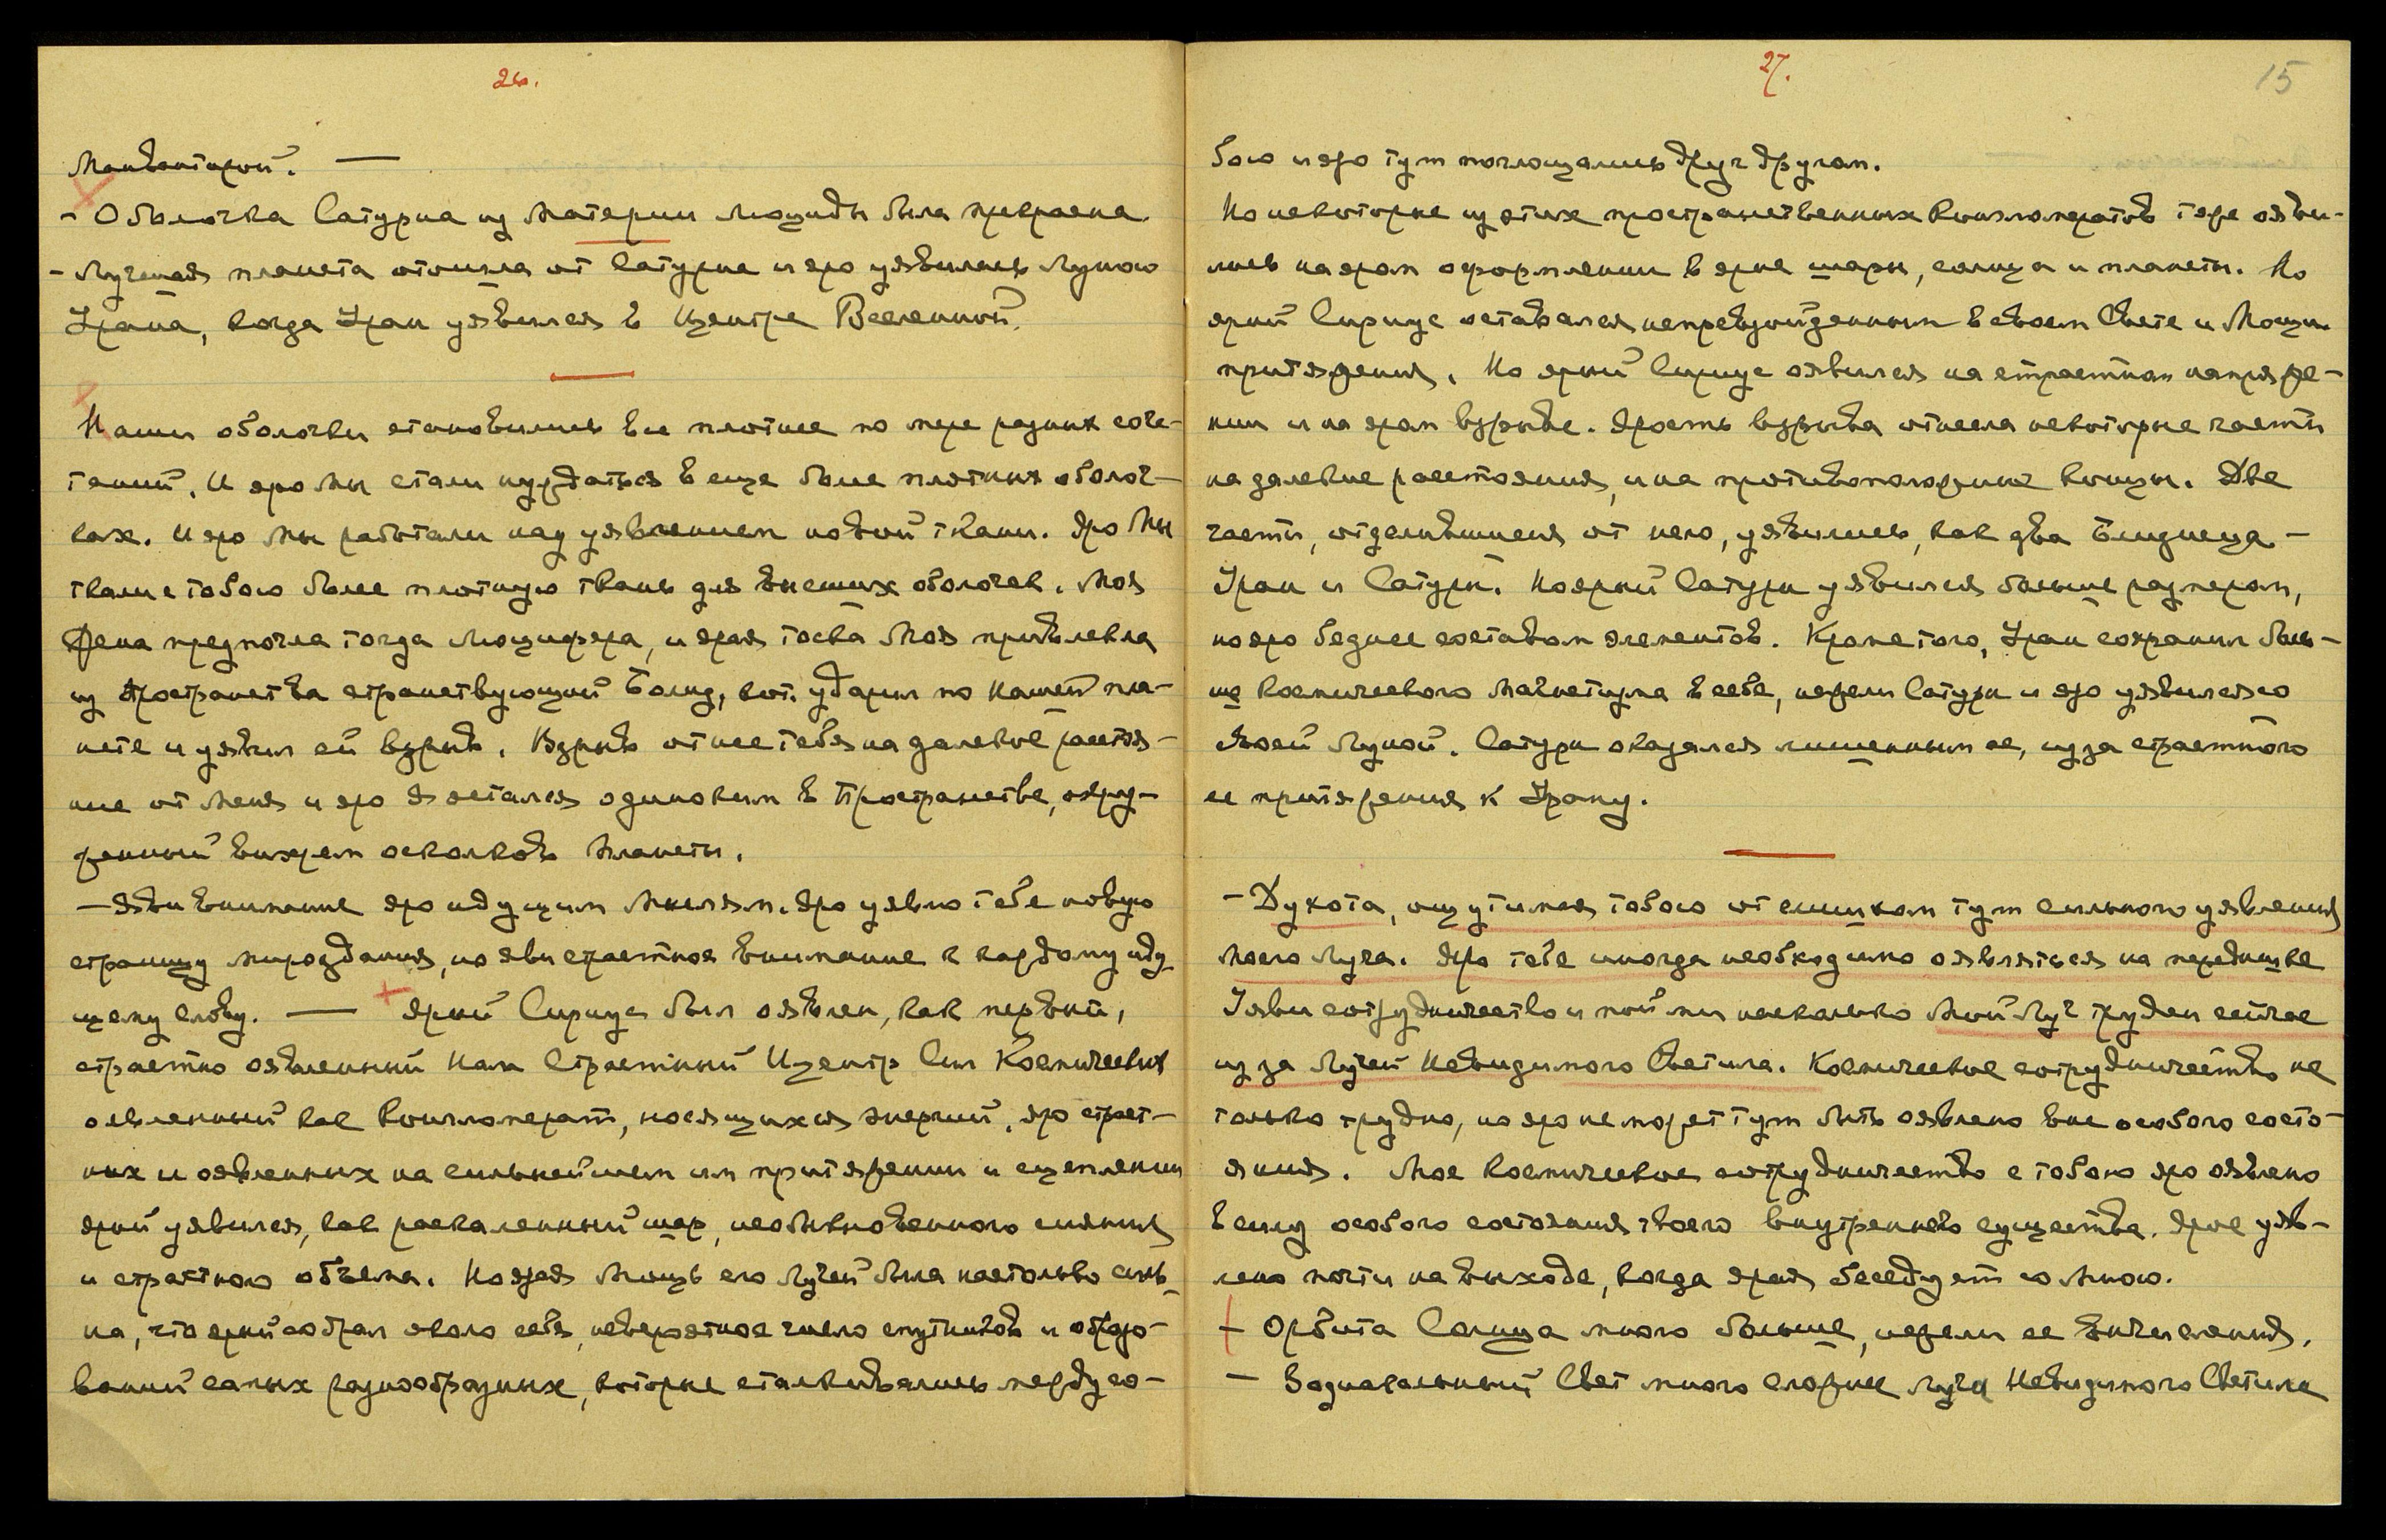 26.
Манвантарой. —
- Оболочка Сатурна из Материи Люциды была прекрасна.
- Лучшая планета отошла от Сатурна и яро уявилась Луною
Урана, когда Уран уявился в Центре Вселенной.
Наши оболочки становились все плотнее по мере разных соче-
таний. И яро Мы стали нуждаться в еще более плотных оболоч-
ках. И яро Мы работали над уявлением новой ткани. Яро Мы
ткали с тобою более плотную ткань для внешних оболочек. Моя
Жена предпочла тогда Люцифера, и ярая тоска Моя привлекла
из пространства странствующий Болид, кот. ударил по Нашей пла-
нете и уявил ей взрыв. Взрыв отнес тебя на далекое расстоя-
ние от Меня и яро Я остался одиноким в Пространстве, окру-
женный вихрем осколков планеты.
— Яви внимание яро идущим Мыслям. Яро уявлю тебе новую
страницу мироздания, но яви страстное внимание к каждому иду-
щему слову. — Ярый Сириус был оявлен, как первый,
страстно оявленный Нам Страстный Центр Сил Космических
оявленный как конгломерат, носящихся энергий, яро страст-
ных и оявленных на сильнейшем им притяжении и сцеплении
ярый уявился, как раскаленный шар, необыкновенного сияния
и страстного объема. Но ярая Мощь его Лучей была настолько силь-
на, что ярый собрал около себя, невероятное число спутников и образо-
ваний самых разнообразных, которые сталкивались между со-
27.
15
бою и яро тут поглощались друг другом.
Но некоторые из этих пространственных конгломератов тоже ояви-
лись на яром оформлении в ярые шары, солнца и планеты. Но
ярый Сириус оставался непревзойденным в своем Свете и Мощи
притяжения. Но ярый Сириус оявился на страстном напряже-
нии и на яром взрыве. Ярость взрыва отнесла некоторые части
на далекие расстояния, и на противоположные концы. Две
части, отделившиеся от него, уявились, как два Близнеца —
Уран и Сатурн. Но ярый Сатурн уявился больше размером,
но яро беднее составом элементов. Кроме того, Уран сохранил боль-
ше космического Магнетизма в себе, нежели Сатурн и яро уявился со
своей Луной. Сатурн оказался лишенным ее, из за страстного
ее притяжения к Урану.
- Духота, ощутимая тобою от слишком тут сильного уявления
Моего Луча. Яро тебе иногда необходимо оявляться на передышке
Уяви сотрудничество и пойми насколько Мой Луч труден сейчас
из за Лучей Невидимого Светила. Космическое сотрудничество не
только трудно, но яро не может тут быть оявлено вне особого состо-
яния. Мое космическое сотрудничество с тобою яро оявлено
в силу особого состояния твоего внутреннего существа. Ярое уяв-
лено почти на выходе, когда ярая беседует со Мною.
- Орбита Солнца много больше, нежели ее вычисления.
- Зодиакальный Свет много сложнее луча Невидимого Светила